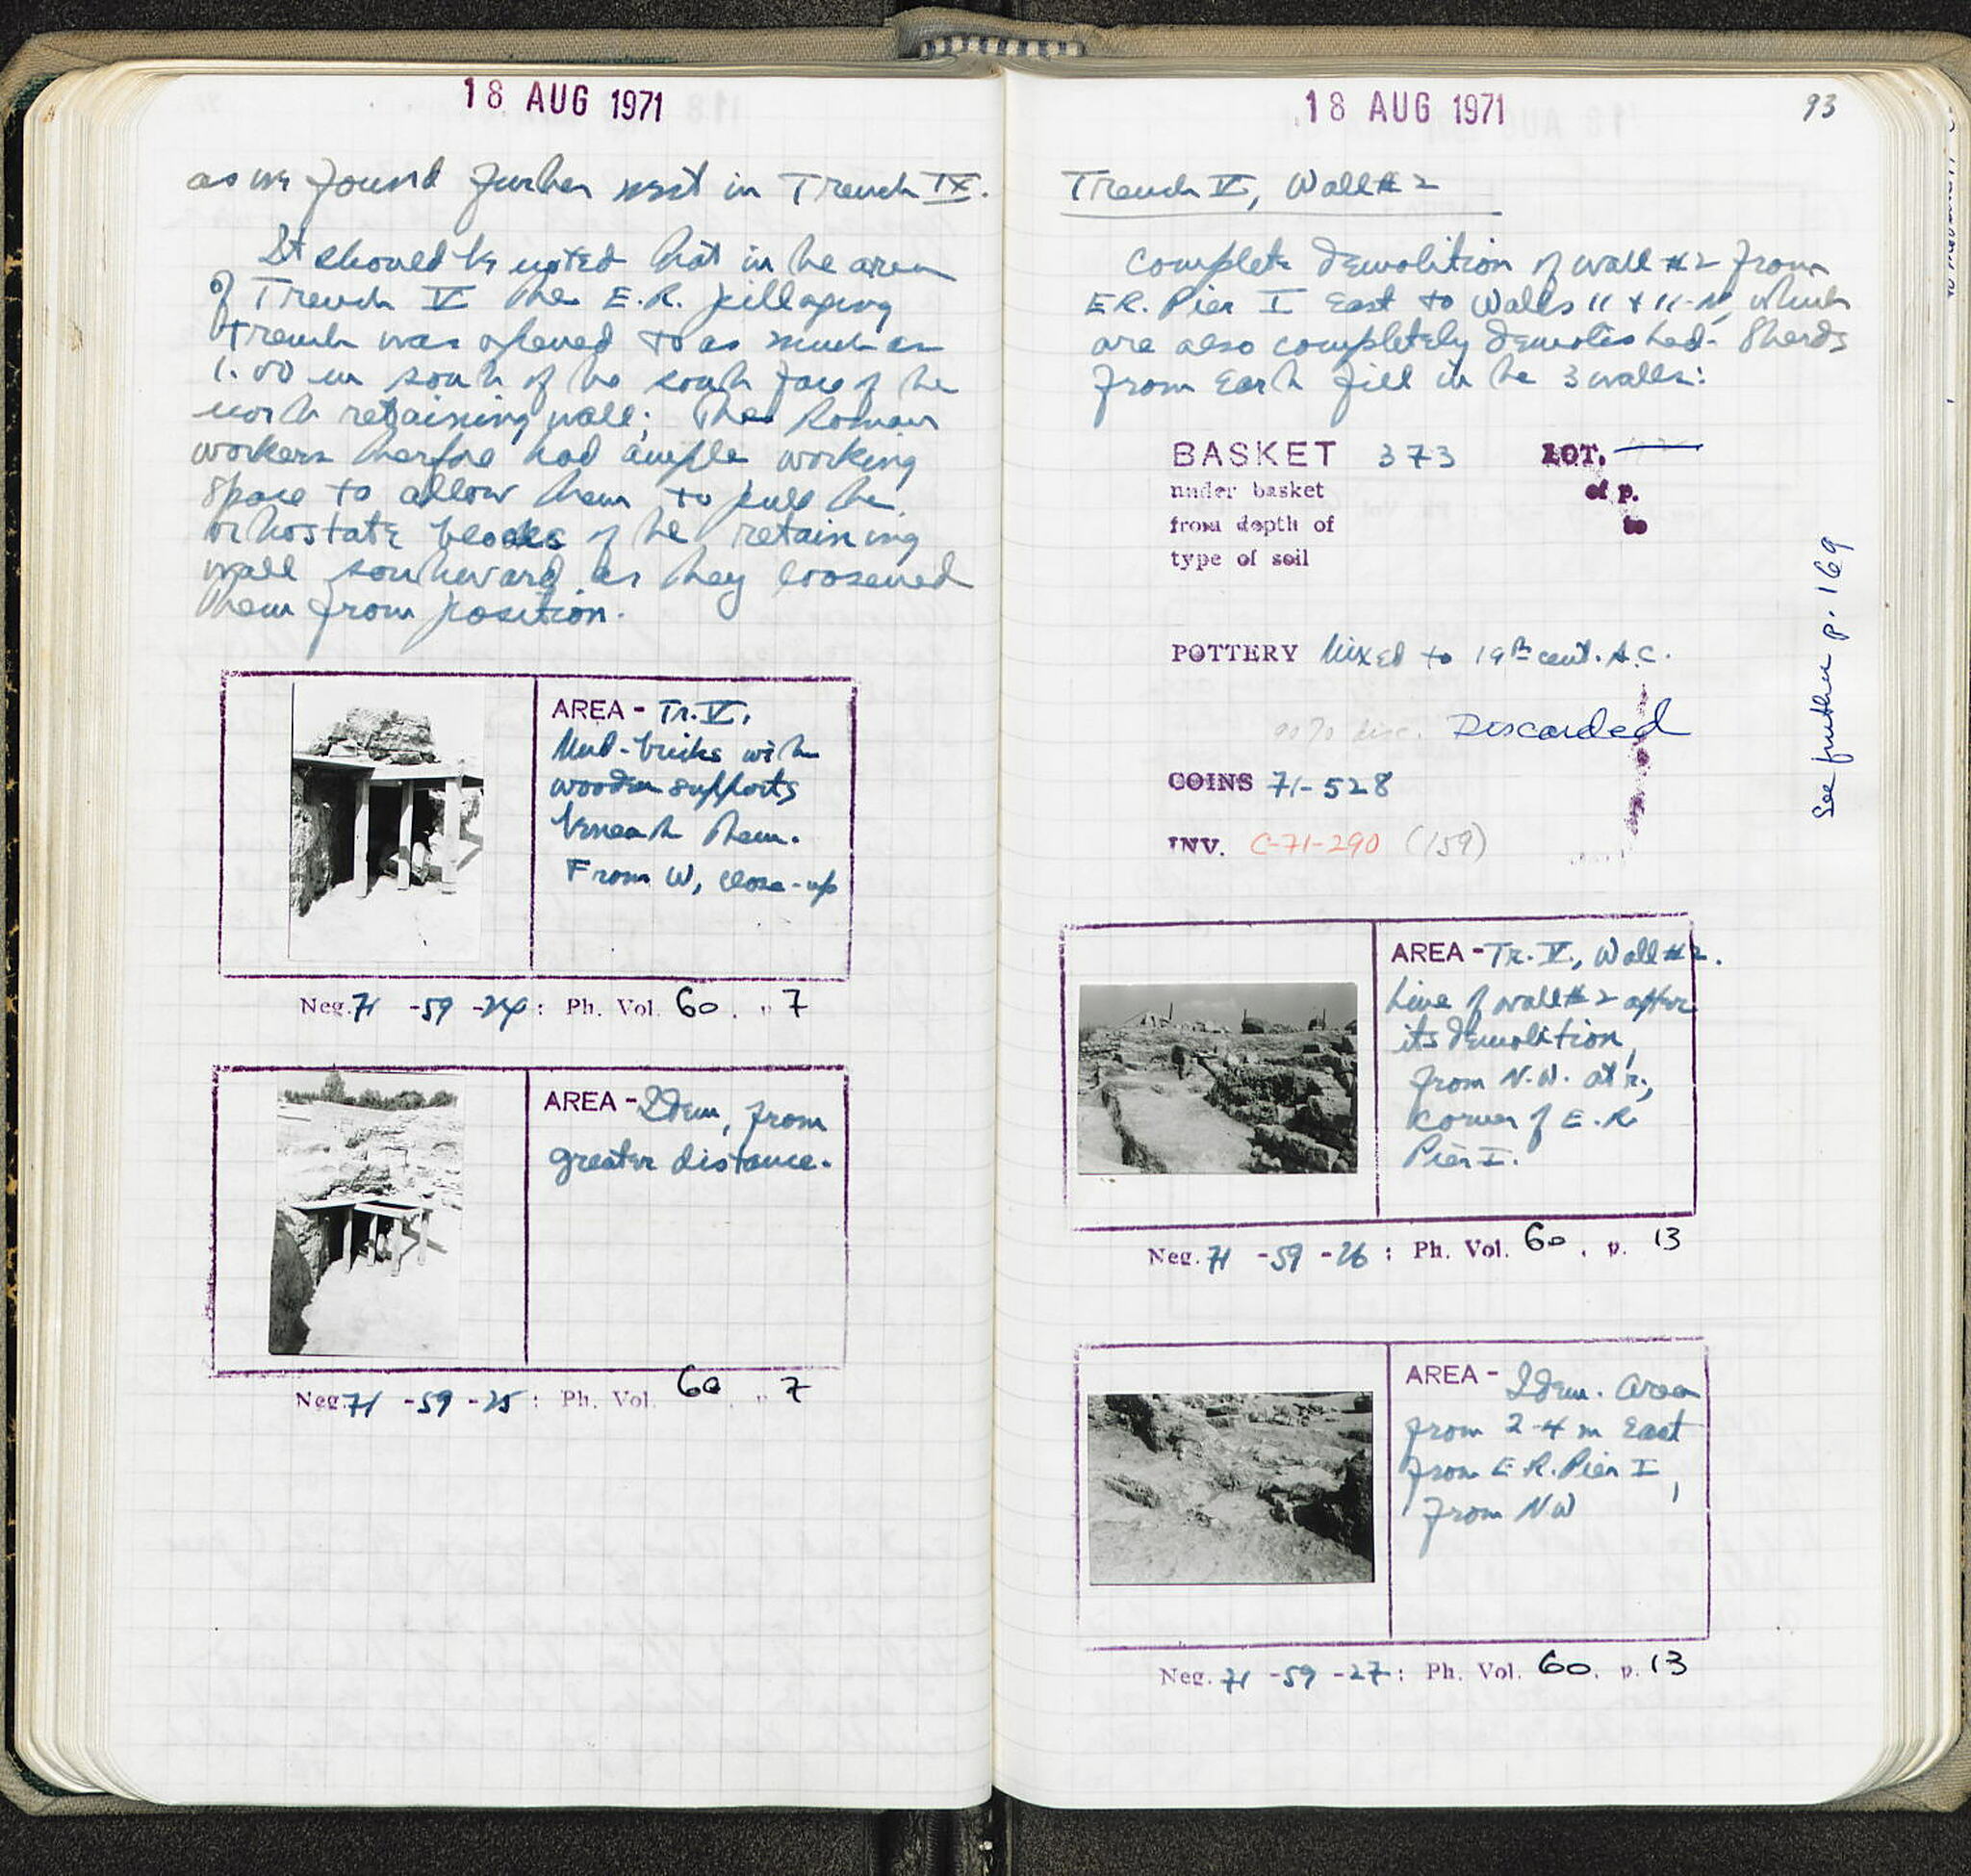 18 AUG 1971
as we found further west in Trench IX.
It should be noted that in the area
of Trench V the E.R. pillaging
trench was opened to as much as
1.00 m south of the south face of the
north retaining wall; The Roman
workers therfore had ample working
space to allow them to pull the
orthostate blocks of the retaining
wall southward as they loosened
them from position.
AREA - Tr. V.
Mud-bricks with
wooden supports
beneath them.
From W, close-up
Neg. 71 -59 -24 : Ph. Vol. 60, p 7
AREA - Idem, from
greater distance.
Neg. 71 -59 -25 : Ph. Vol. 60, p 7
18 AUG 1971
93
Trench V, Wall #2
Complete demolition of wall #2 from
E.R. Pier I East to Walls 11 + 11-N, which
are also completely demolished. Sherds
from Earth fill in the 3 walls:
BASKET 373 LOT.
under basket of p.
from depth of to
type of soil
POTTERY Mixed to 19th cent. A.C.
90% disc. Discarded
COINS 71-528
INV. C-71-290 (159)
See further p. 169
AREA - Tr. V, Wall #2.
Line of wall #2 after
its demolition,
from N.W. at r.,
corner of E.R.
Pier I.
Neg. 71 -59 -26 : Ph. Vol. 60, p. 13
AREA - Idem. Area
from 2-4 m East
from E.R. Pier I,
from NW
Neg. 71 -59 -27 : Ph. Vol. 60, p. 13